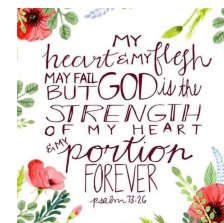 MY
heart & MY flesh
MAY FAIL
BUT GOD is the
STRENGTH
OF MY HEART
& MY portion
FOREVER
psalm 73:26